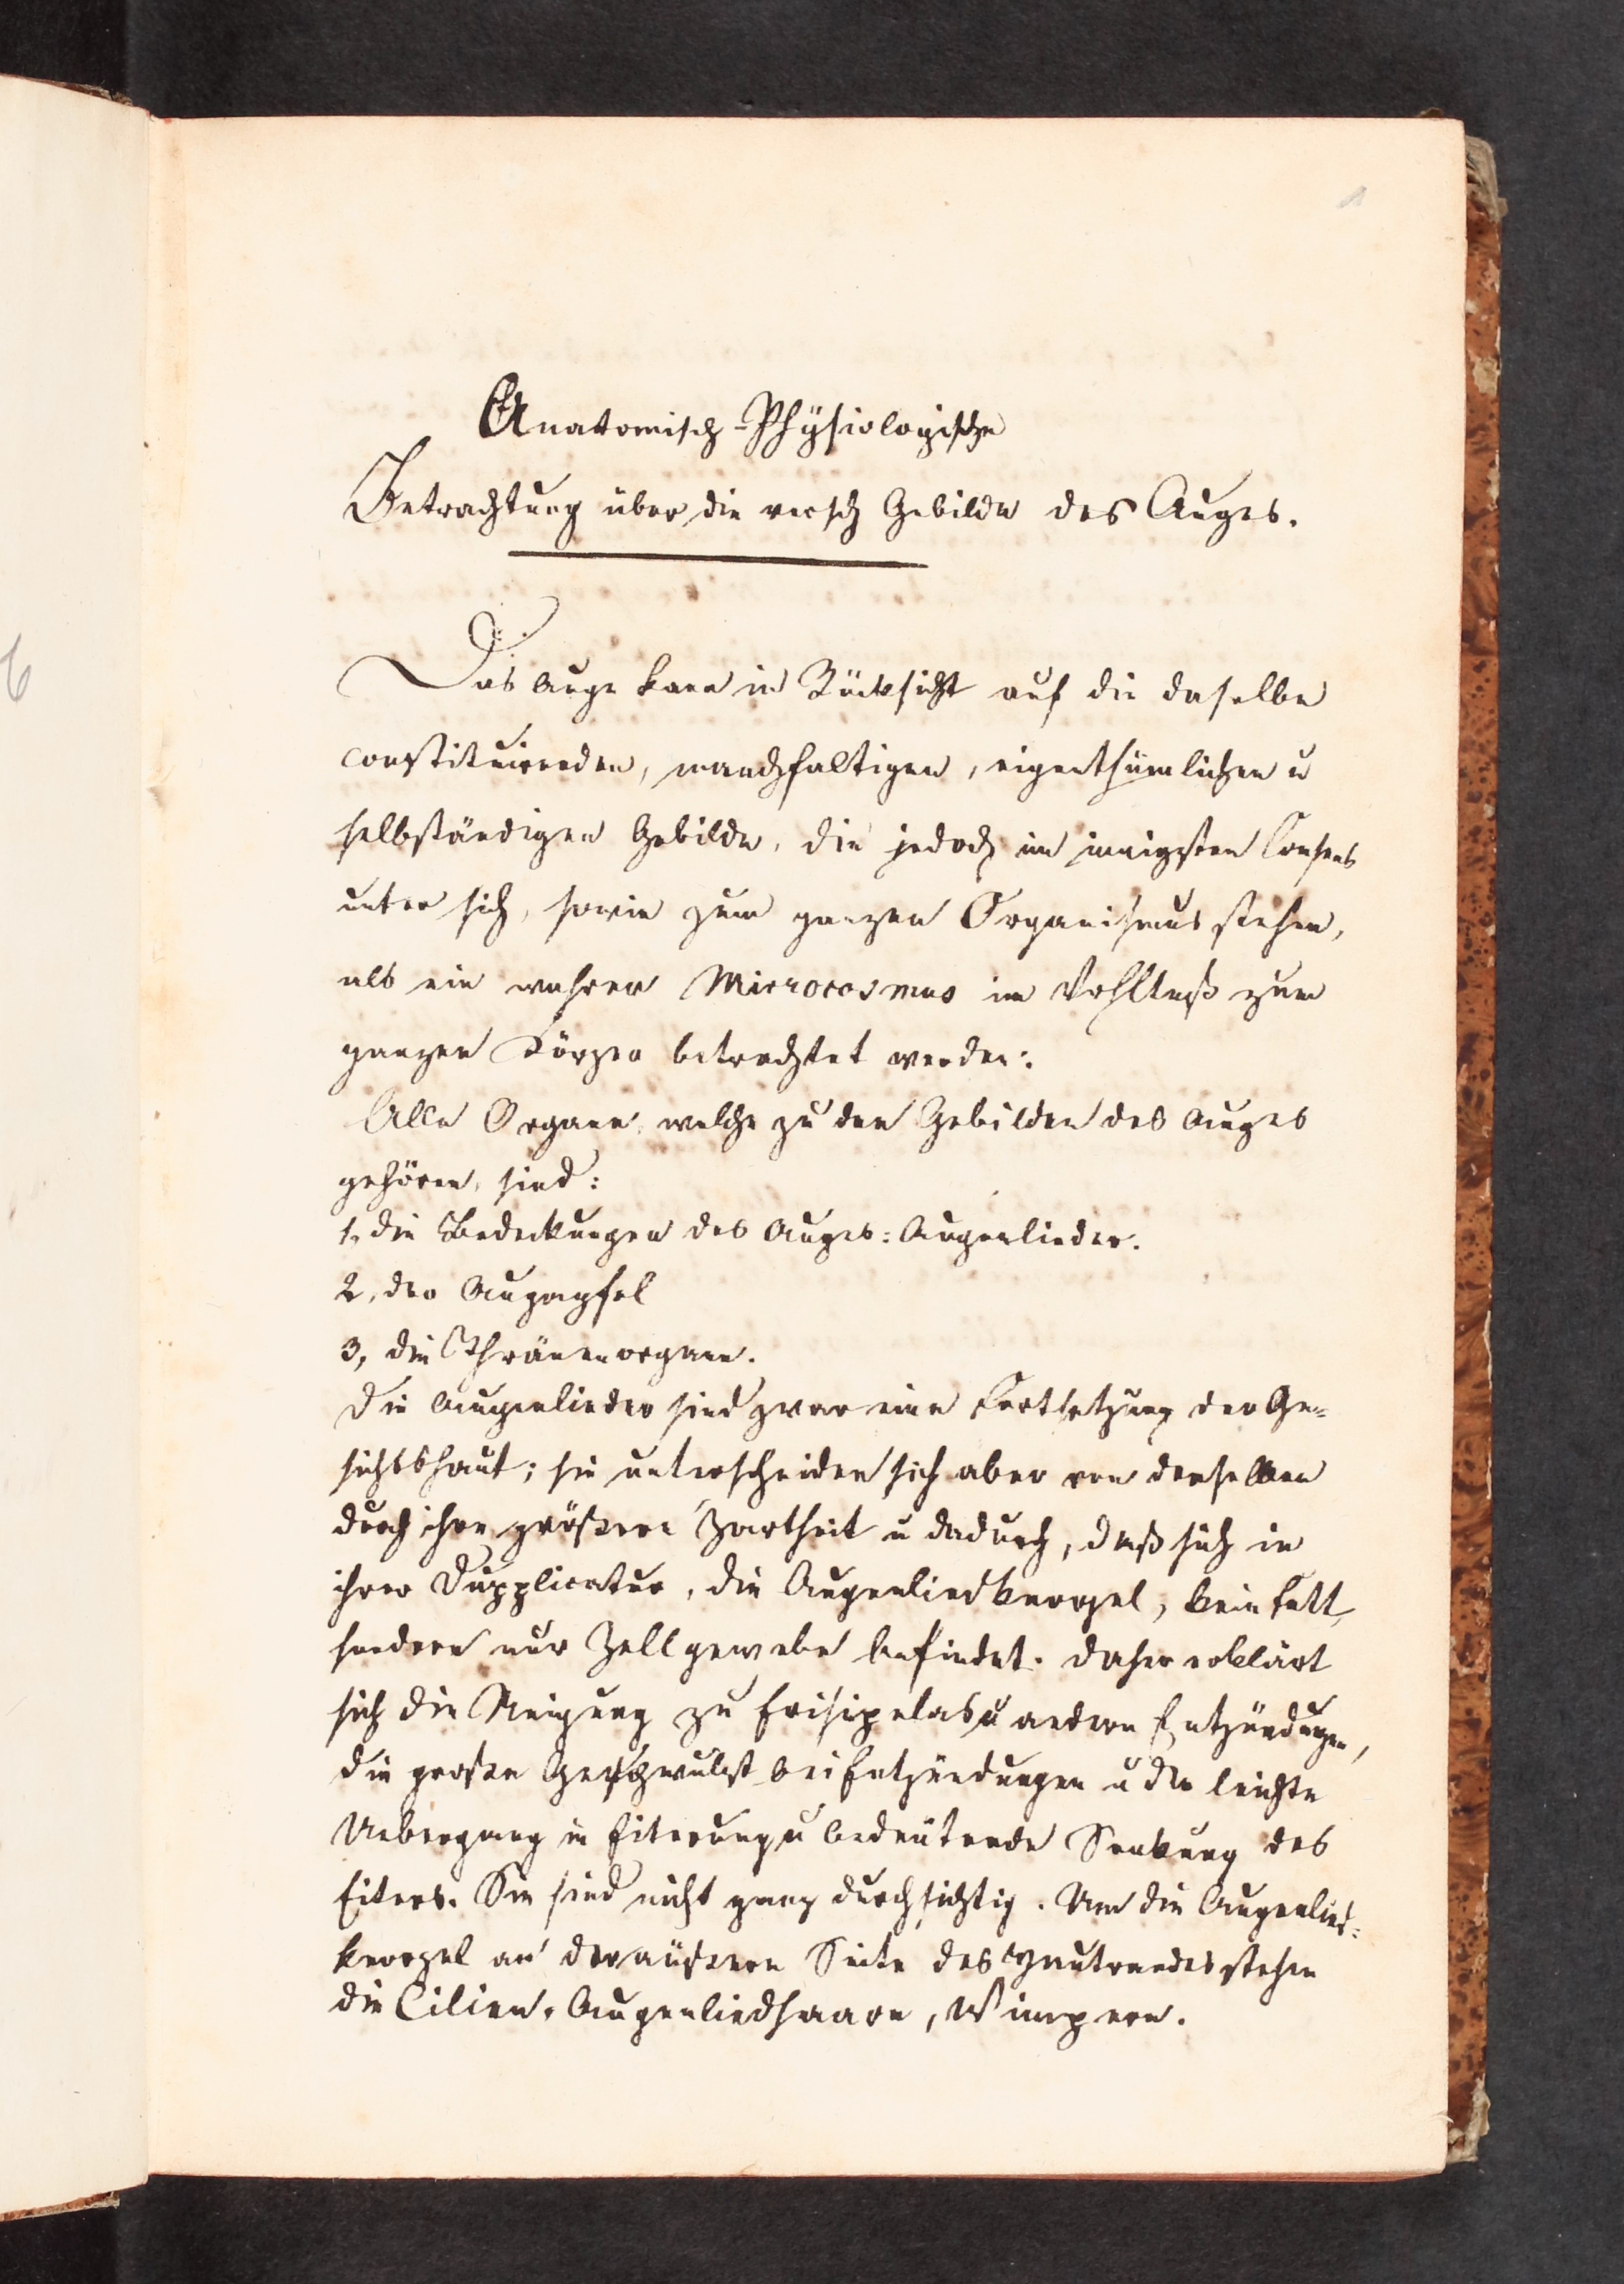 1
Anatomisch-Physiologische
Betrachtung über die versch Gebilde des Auges.
Das Auge kann in Rücksicht auf die daselbe
constituirenden, manchfaltigen, eigenthümlichen u
selbständigen Gebilde, die jedoch im innigsten Consens
unter sich, sowie zum ganzen Organismus stehen,
als ein wahrer Microcosmus im Vrhltniß zum
ganzen Körper betrachtet werden.
Alle Organe, welche zu den Gebilden des Auges
gehören, sind:
1, die Bedeckungen des Auges: Augenlieder.
2, der Augapfel
3, die Thränenorgane.
Die Augenlieder sind zwar eine Fortsetzung der Ge-
sichtshaut; sie unterscheiden sich aber von derselben
durch ihre größere Zartheit u dadurch, daß sich in
ihrer Dupplicatur, die Augenliedknorpel, kein Fett,
sondern nur Zellgewebe befindet. Daher erklärt
sich die Neigung zu Erisipelas u andern Entzündugen,
die große Geschwulst bei Entzündungen u der leichte
Uebergang in Eiterung u bedeutende Senkung des
Eiters. Sie sind nicht ganz durchsichtig. Um die Augenlied-
knorpel an der äußern Seite des Hautrandes stehen
die Cilien, Augenliedhaare, Wimpern.